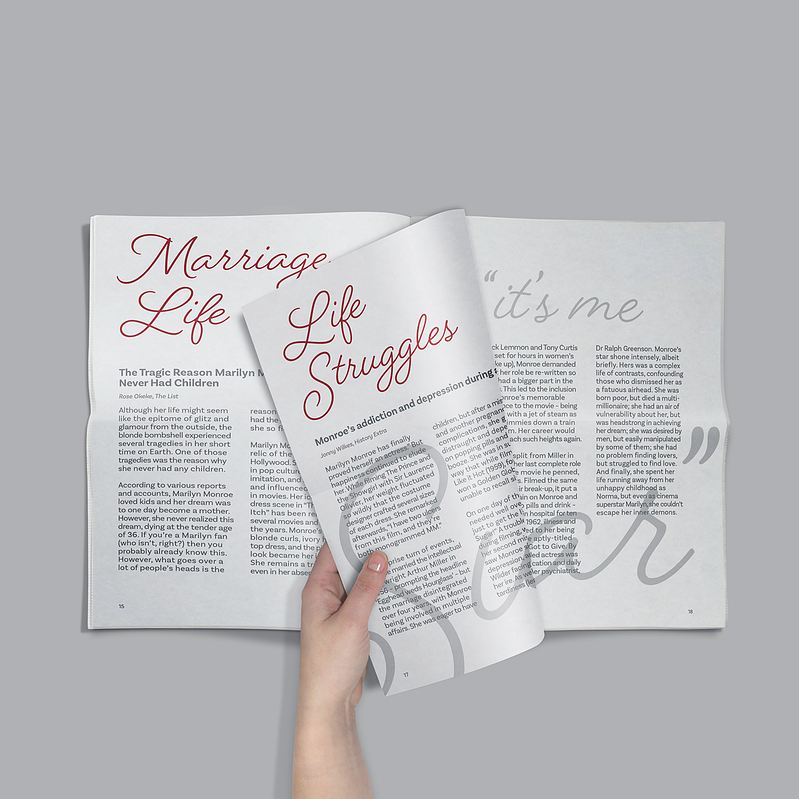 Marriage
Life
The Tragic Reason Marilyn M
Never Had Children
Rose Okeke, The List
Although her life might seem
like the epitome of glitz and
glamour from the outside, the
blonde bombshell experienced
several tragedies in her short
time on Earth. One of those
tragedies was the reason why
she never had any children.
According to various reports
and accounts, Marilyn Monroe
loved kids and her dream was
to one day become a mother.
However, she never realized this
dream, dying at the tender age
of 36. If you're a Marilyn fan
(who isn't, right?) then you
probably already know this.
However, what goes over a
lot of people's heads is the
reason
had the
she so f
Marilyn M
relic of the
Hollywood. S
in pop culture
imitation, and
and influenced
in movies. Her ic
dress scene in "T
Itch" has been re
several movies and
the years. Monroe's
blonde curls, ivory
top dress, and the p
look became her
She remains a tr
even in her abse
15
Life
Struggles
Monroe's addiction and depression during
Jonny Wilkes, History Extra
Marilyn Monroe has finally
proved herself an actor. But
happiness continued to elude
her. While filming The Prince and
the Showgirl with Sir Laurence
Olivier, her weight fluctuated
so wildly that the costume
designer crafted several sizes
of each dress. She remarked
afterwards, "I have two ulcers
from this film, and they're
both monogrammed MM."
prise turn of events,
the intellectual
wright Arthur Miller in
56 – prompting the headline
'Egghead weds Hourglass' – but
the marriage disintegrated
over four years, with Monroe
being involved in multiple
affairs. She was eager to have
children, but after a mis
and another pregnancy
complications, she g
distraught and depr
on popping pills and
booze. She was in su
way that while film
Like it Hot (1959), fo
won a Golden Glob
unable to recall si
On one day of th
needed well ove
just to get the li
Sugar." A troubl
during filming,
her second mi
saw Monroe
depression
Wilder facing
her ire. As w
tardiness
17
"it's me
ck Lemmon and Tony Curtis
set for hours in women's
ke up), Monroe demanded
her role be re-written so
had a bigger part in the
This led to the inclusion
Monroe's memorable
nce to the movie – being
with a jet of steam as
mmies down a train
m. Her career would
ch such heights again.
split from Miller in
her last complete role
s. Filmed the same
ir break-up, it put a
ain on Monroe and
pills and drink –
n hospital for ten
1962, illness and
ed to her being
tly-titled
Got to Give.
led actress was
cation
er psychiatrist,
Dr Ralph Greenson. Monroe's
star shone intensely, albeit
briefly. Hers was a complex
life of contrasts, confounding
those who dismissed her as
a fatuous airhead. She was
born poor, but died a multi-
millionaire; she had an air of
vulnerability about her, but
was headstrong in achieving
her dream; she was desired by
men, but easily manipulated
by some of them; she had
no problem finding lovers,
but struggled to find love.
And finally, she spent her
life running away from her
unhappy childhood as
Norma, but even as cinema
superstar Marilyn, she couldn't
escape her inner demons.
Star"
16